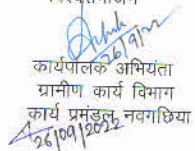 26/9/22
कार्यपालक अभियंता
ग्रामीण कार्य विभाग
कार्य प्रमंडल, नवगछिया
26/09/2022